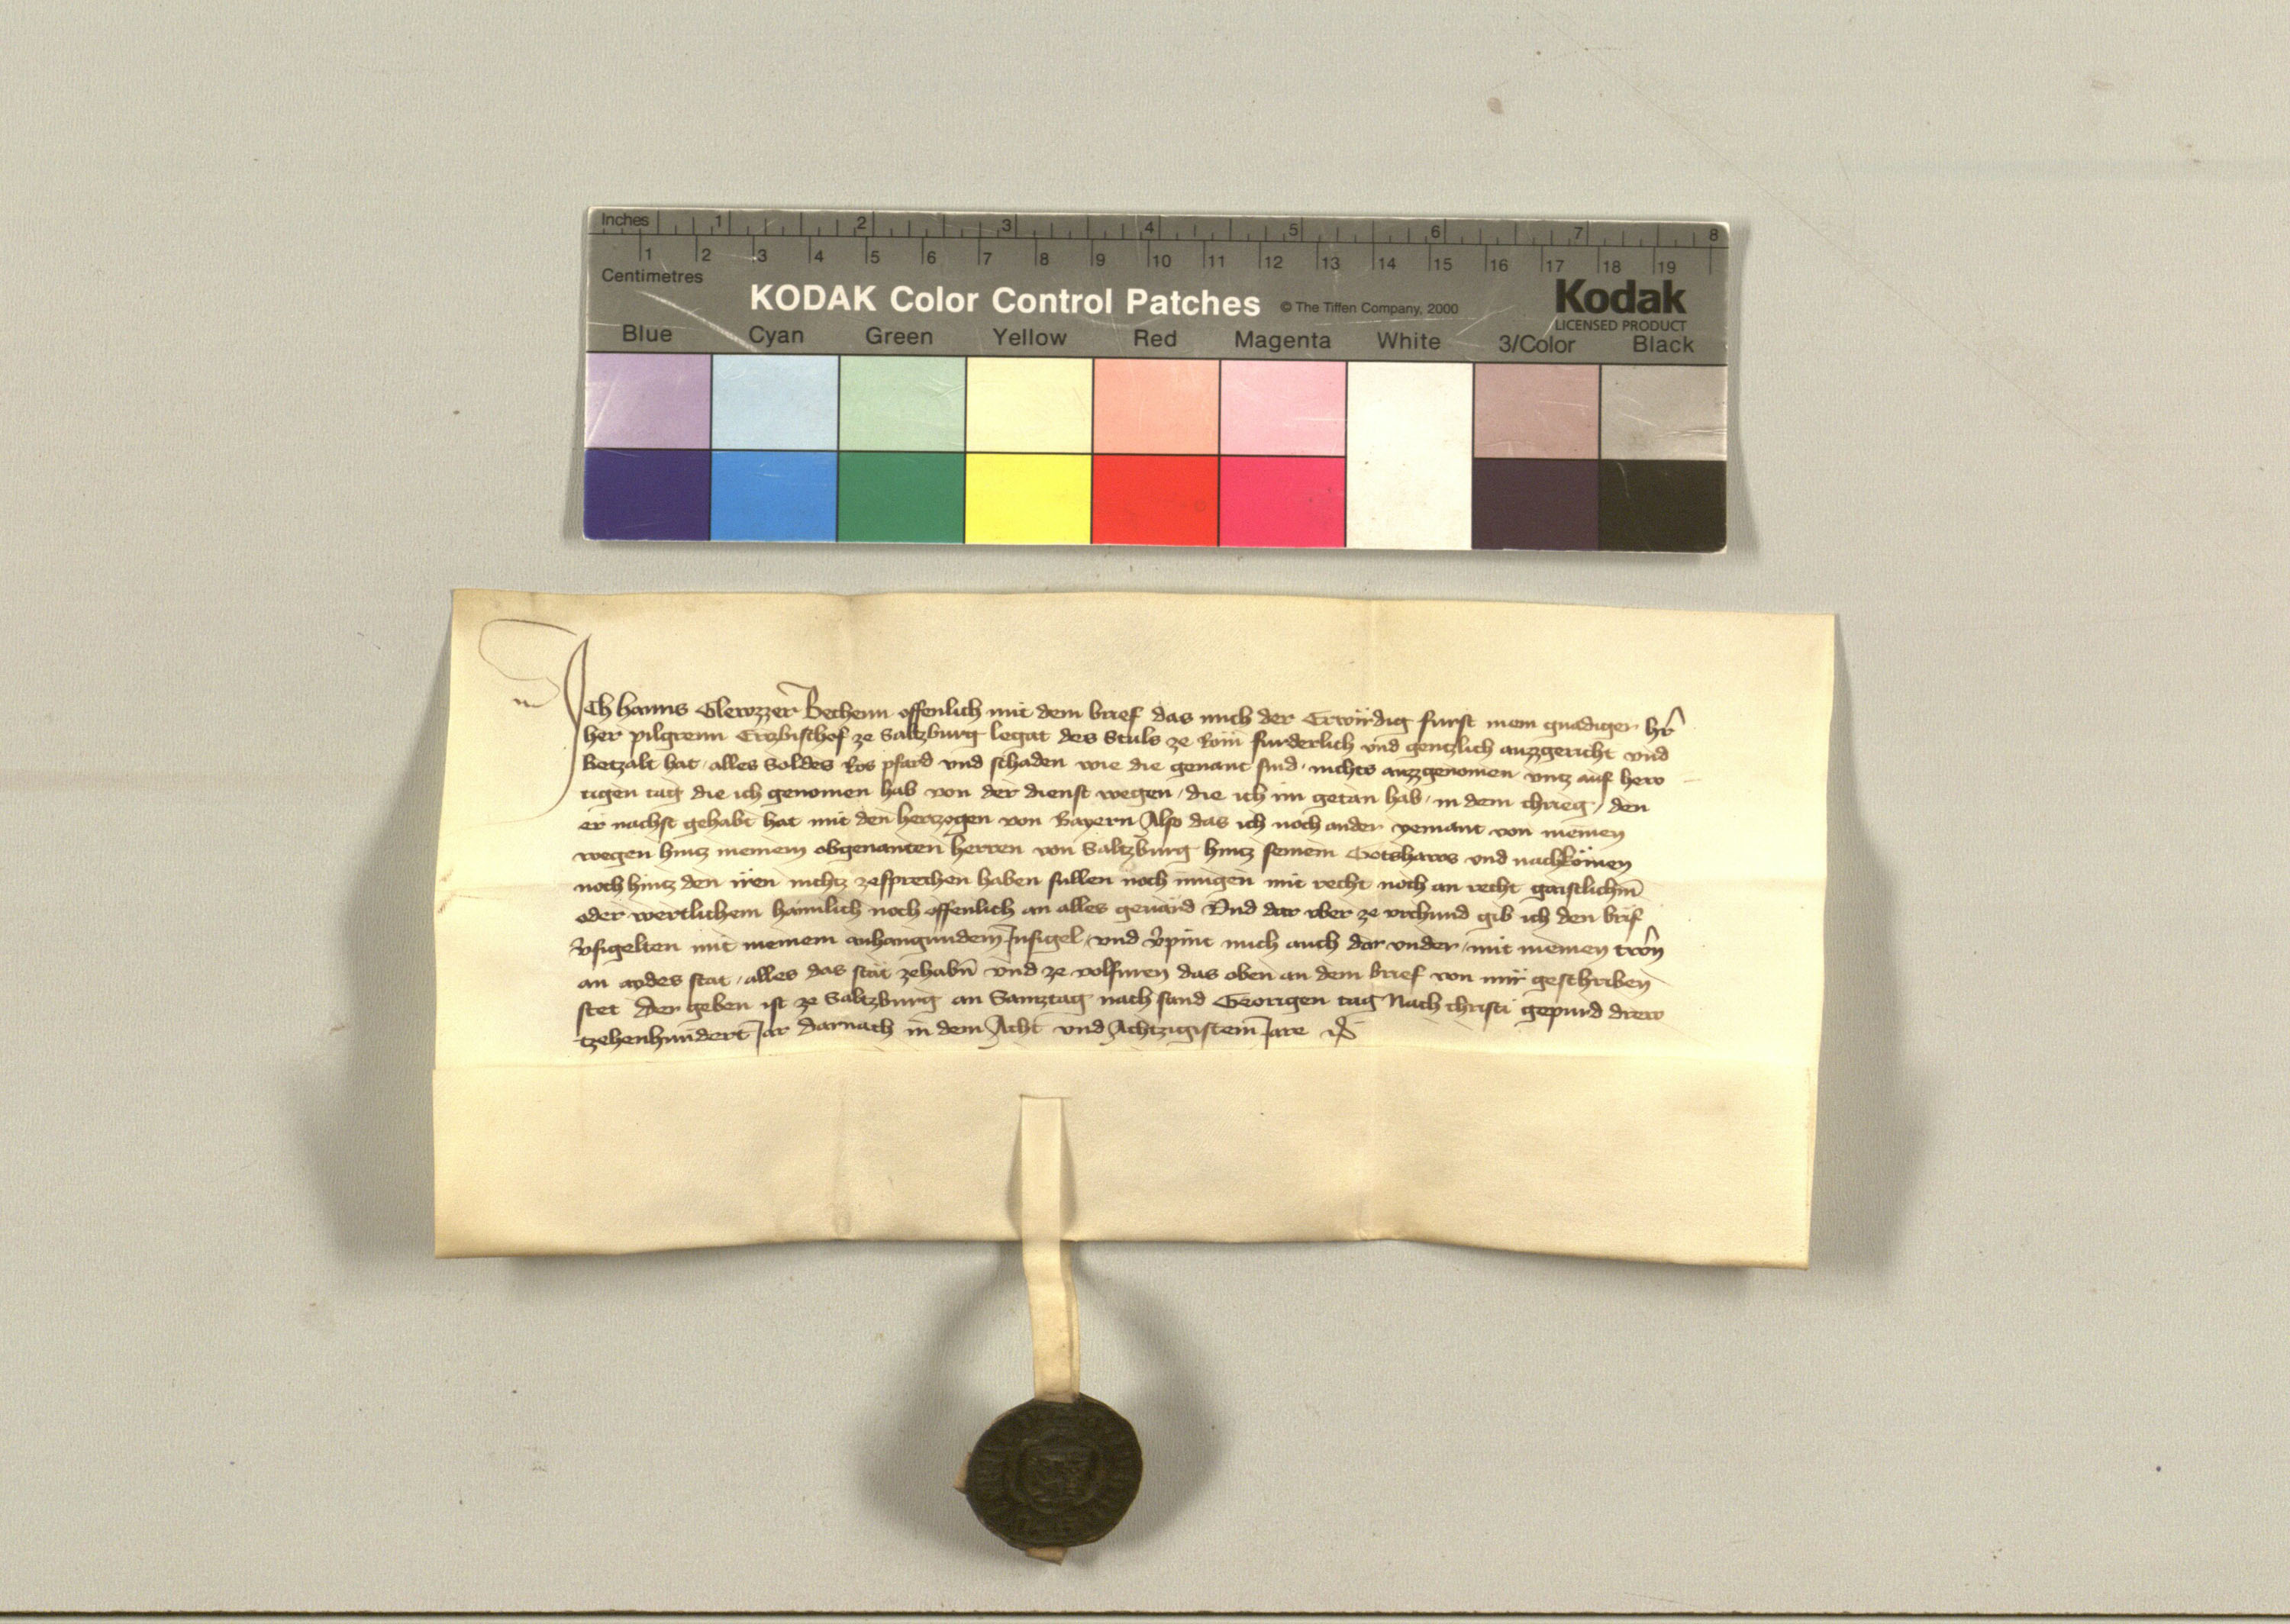 Inches 1 2 3 4 5 6 7 8
1 2 3 4 5 6 7 8 9 10 11 12 13 14 15 16 17 18 19
Centimetres
KODAK Color Control Patches © The Tiffen Company, 2000 Kodak
LICENSED PRODUCT
Blue Cyan Green Yellow Red Magenta White 3/Color Black
Ich hanns Glewzzer Bechenn offenlich mit dem brief das mich der Erwirdig furst mein gnediger hr̄
her pilgreim Erczbischof ze Saltzburg legat des Stuls ze Rom furderlich vnd gentzlich auzzgericht vnd
Betzalt hat alles Soldes Ros pfard vnd schaden wie die genant sind nichts auzzgenomen vntz auf hew
tigen tag die ich genomen hab von der dienst wegen die ich im getan hab in dem chrieg den
er nachst gehabt hat mit den hertzogen von Bayern Also das ich noch ander yemant von meinen
wegen hintz meinem obgenanten herren von Saltzburg hintz seinem Gotshaws vnd nachkömen
noch hintz den iren nichtz zesprechen haben sullen noch mugen mit recht noch an recht gaistlichm̄
oder wertlichem hamlich noch offenlich an alles geuärd Vnd dar vber ze vrchund gib ich den brif
v̄sigelten mit meinem anhangundem Insigel vnd v̄pint mich auch dar vnder mit meinen trwn̄
an aydes stat alles das stät zehabn̄ vnd ze volfuren das oben an dem brief von mir geschriben
stet Der geben ist ze Saltzburg an Samztag nach sand Georigen tag Nach christi gepurd drew
tzehenhundert Jar darnach in dem Acht vnd Achtzigistem Jare